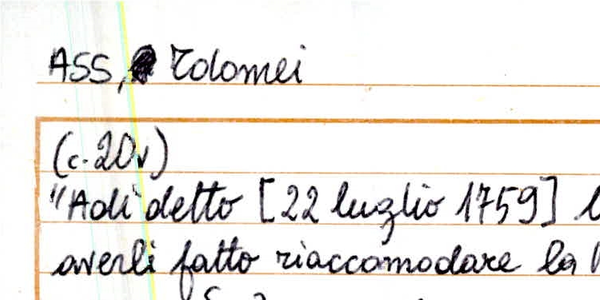 ASS, Tolomei
(c. 20v)
"Adi detto [22 luglio 1759]
averli fatto riaccomodare la